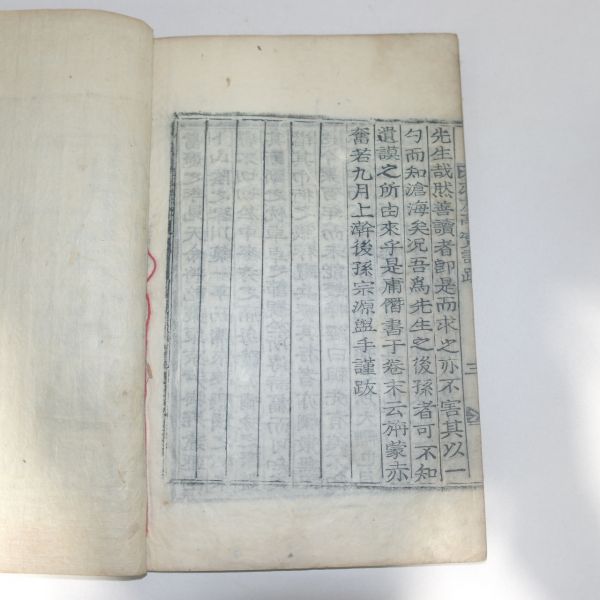 先生哉然善讀者卽是而求之亦不害其以一
勺而知滄海矣况吾爲先生之後孫者可不知
遺謨之所由來乎是庸僭書于卷末云旃蒙赤
奮若九月上澣後孫宗源盥手謹跋
實記跋
三